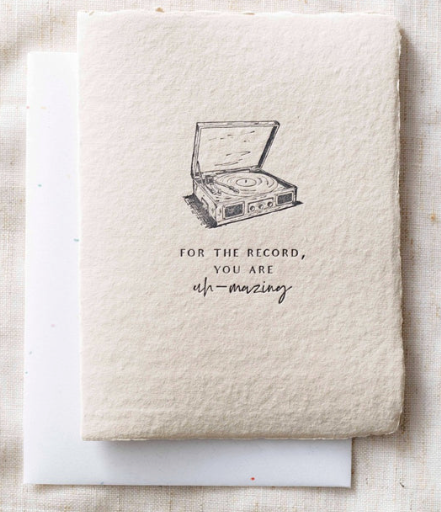 FOR THE RECORD,
YOU ARE
uh-mazing